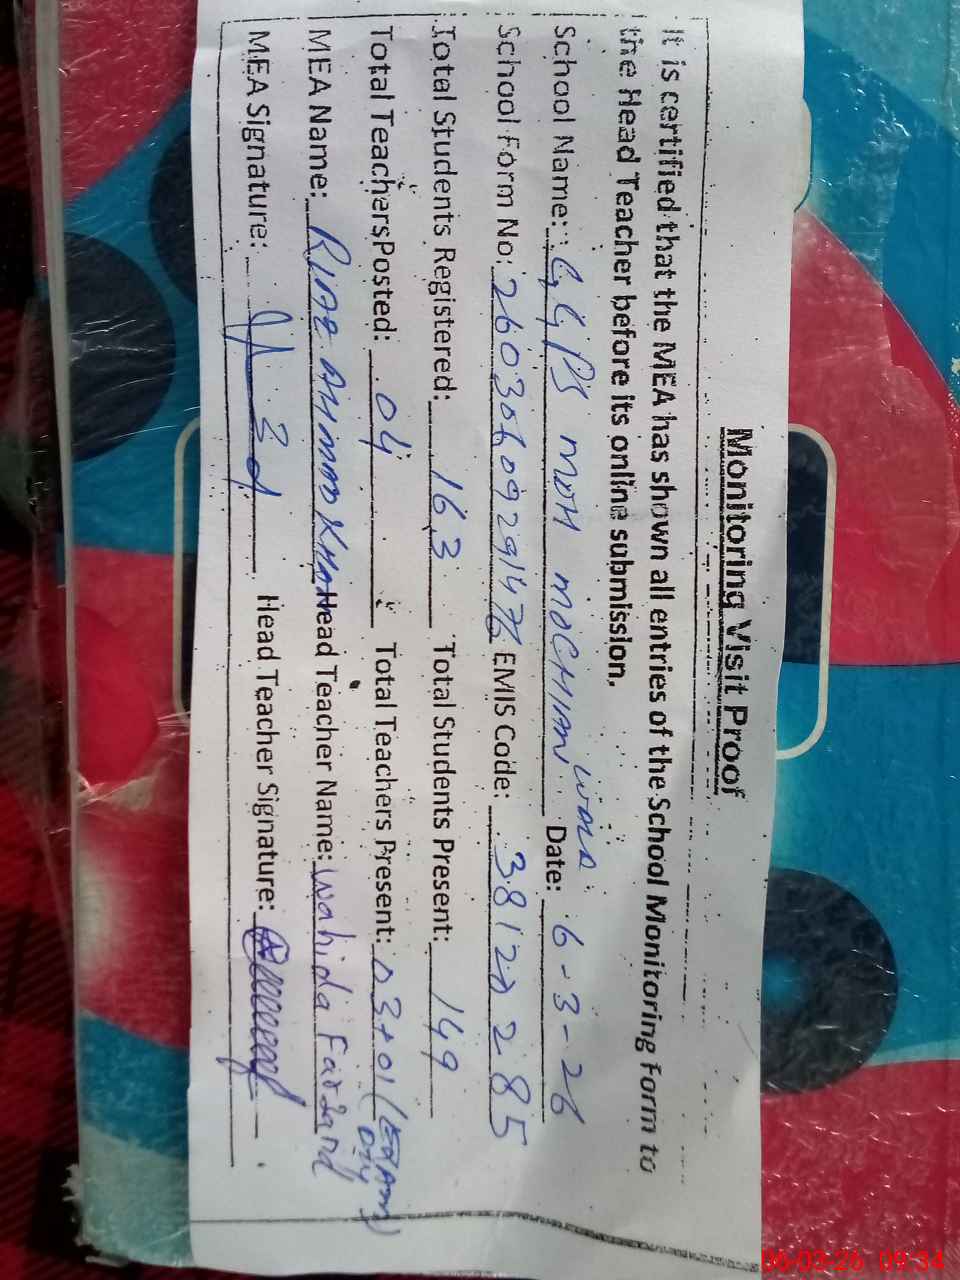 Monitoring Visit Proof
It is certified that the MEA has shown all entries of the School Monitoring Form to
the Head Teacher before its online submission.
School Name: GGPS MOH MOCHIAN WALA Date: 6-3-26
School Form No: EMIS Code: 38122285
Total Students Registered: 163 Total Students Present: 149
Total TeachersPosted: 04 Total Teachers Present: 03+01 (EXAM DTY)
MEA Name: RIAZ AHMAD KHAN Head Teacher Name: Wahida Farzand
MEA Signature: Head Teacher Signature:
06-03-26 09:34